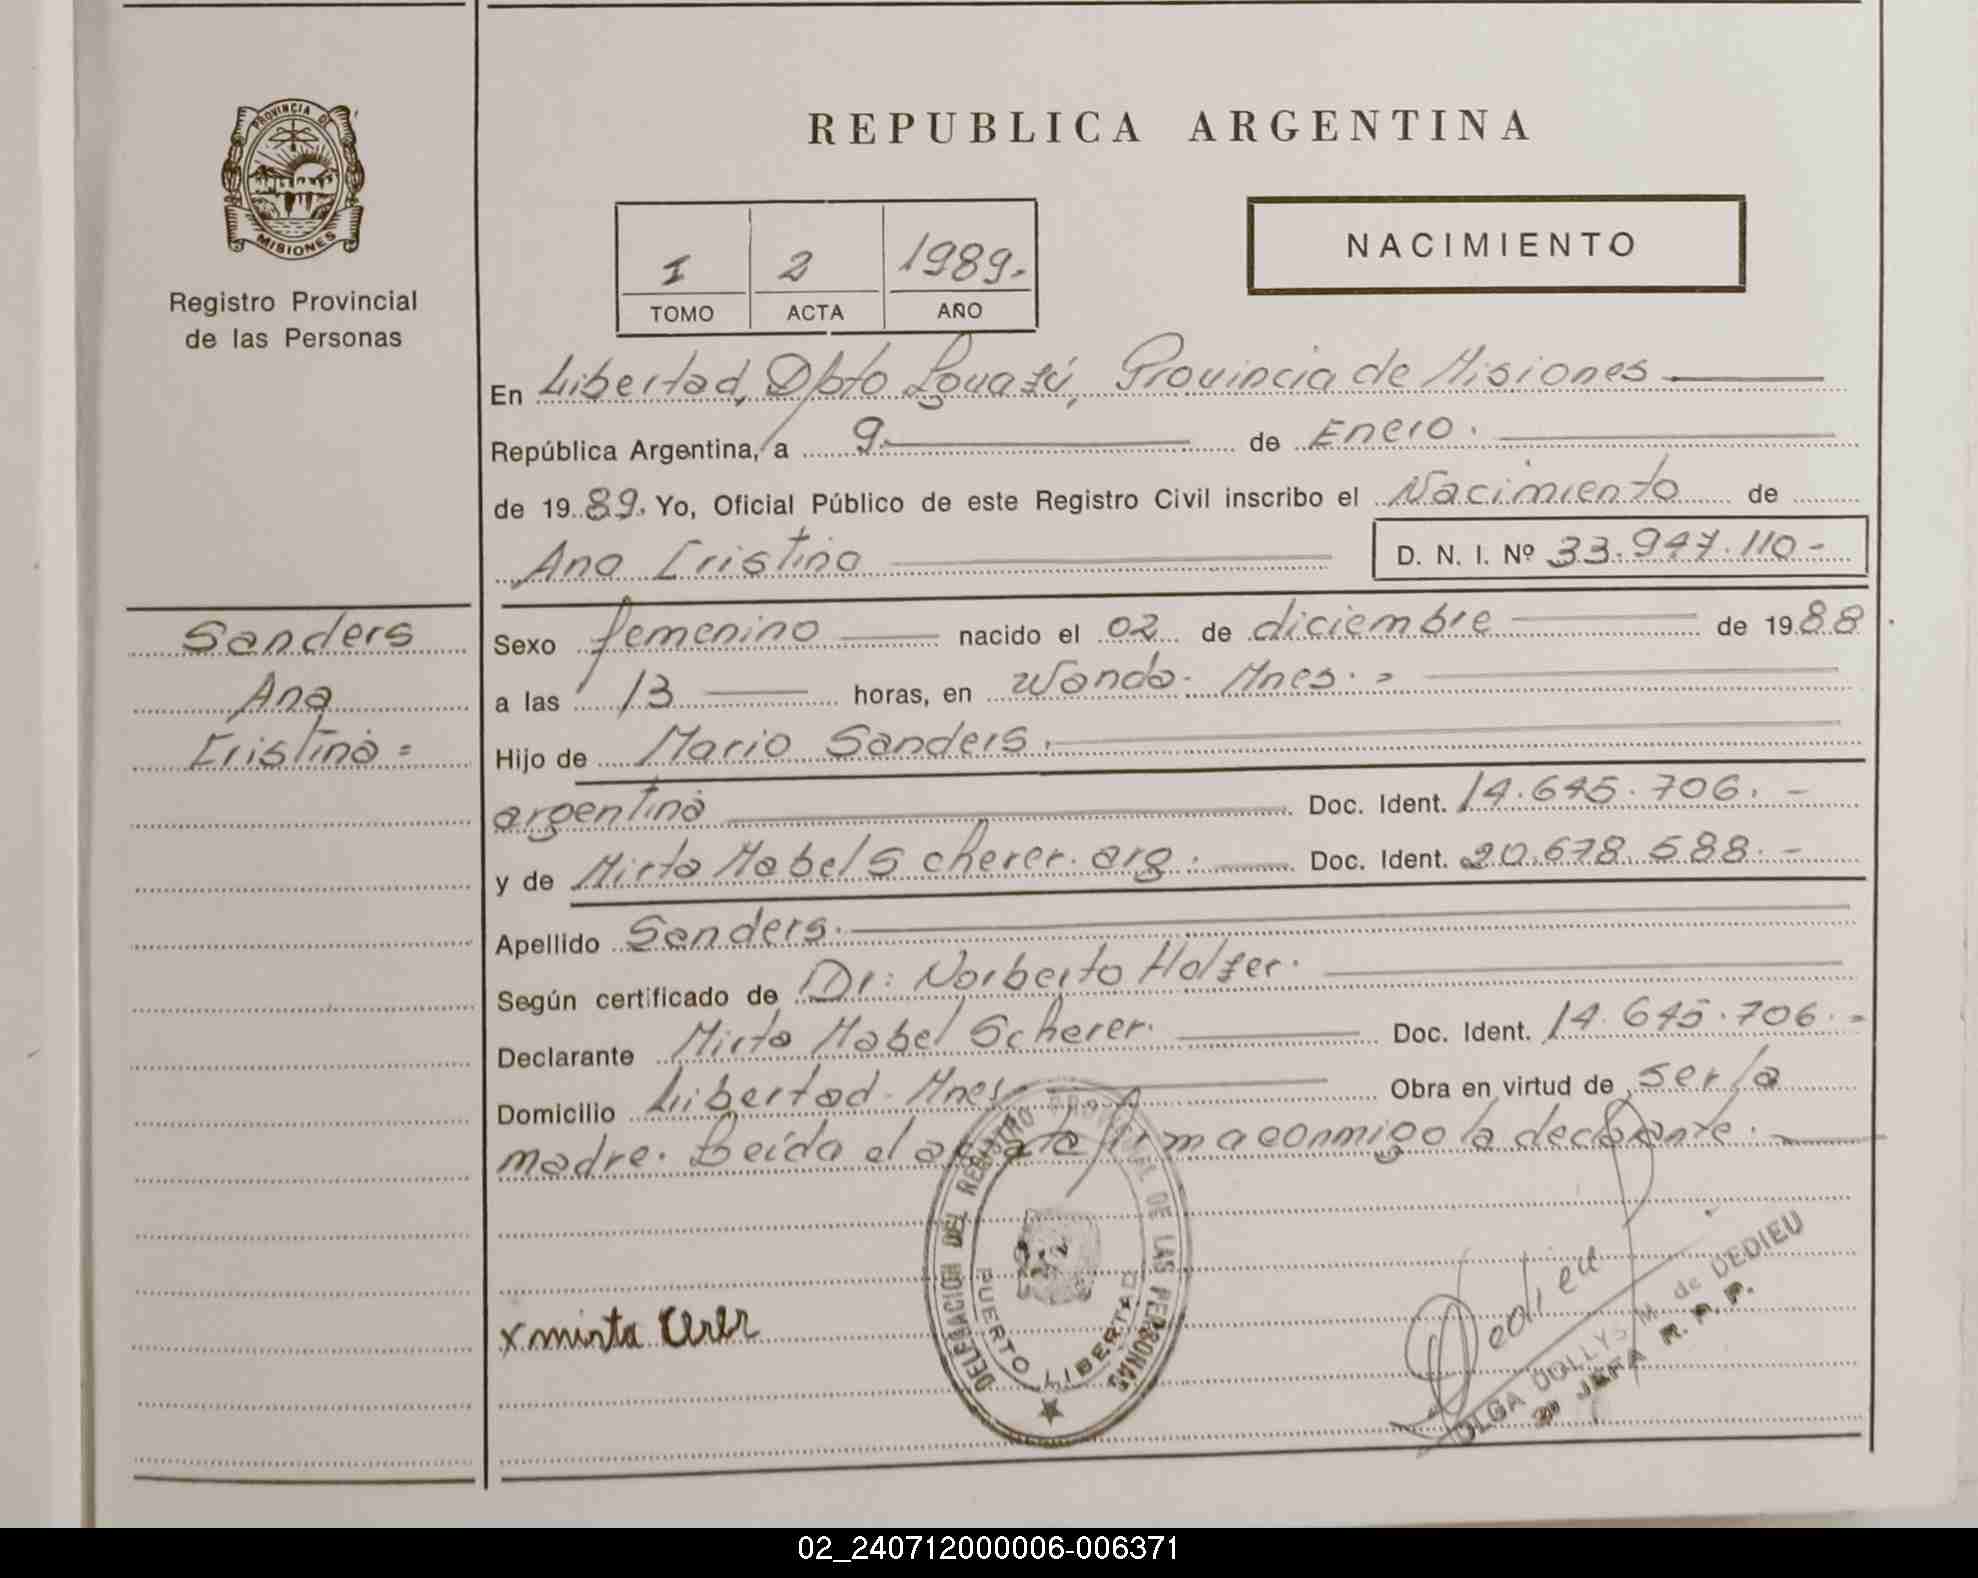 PROVINCIA DE
MISIONES
Registro Provincial
de las Personas
REPUBLICA ARGENTINA
I 2 1989.
TOMO ACTA AÑO
NACIMIENTO
En Libertad, Dpto Iguazú, Provincia de Misiones
República Argentina, a 9 de Enero.
de 1989. Yo, Oficial Público de este Registro Civil inscribo el Nacimiento de
Ana Cristina D. N. I. Nº 33.947.110-
Sanders
Ana
Cristina =
Sexo femenino nacido el 02 de diciembre de 1988
a las 13 horas, en Wanda. Mnes. =
Hijo de Mario Sanders.
argentina Doc. Ident. 14.645.706. -
y de Mirta Mabel Scherer. arg. Doc. Ident. 20.678.588. -
Apellido Sanders.
Según certificado de Dr: Norberto Holzer.
Declarante Mirta Mabel Scherer. Doc. Ident. 14.645.706. =
Domicilio Libertad. Mnes. Obra en virtud de ser la
madre. Leída el acta firma conmigo la declarante.
x mirta
DELEGACION DEL REGISTRO PROVINCIAL DE LAS PERSONAS
PUERTO LIBERTAD
Dedieu
OLGA DOLLY M. de DEDIEU
JEFA R. P. P.
02_240712000006-006371